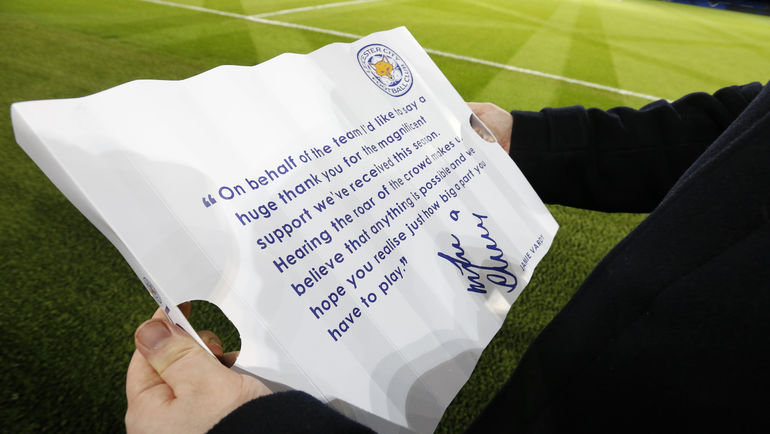 LEICESTER CITY
FOOTBALL CLUB
“On behalf of the team I'd like to say a
huge thank you for the magnificent
support we've received this season.
Hearing the roar of the crowd makes u
believe that anything is possible and we
hope you realise just how big a part you
have to play.”
JAMIE VARDY